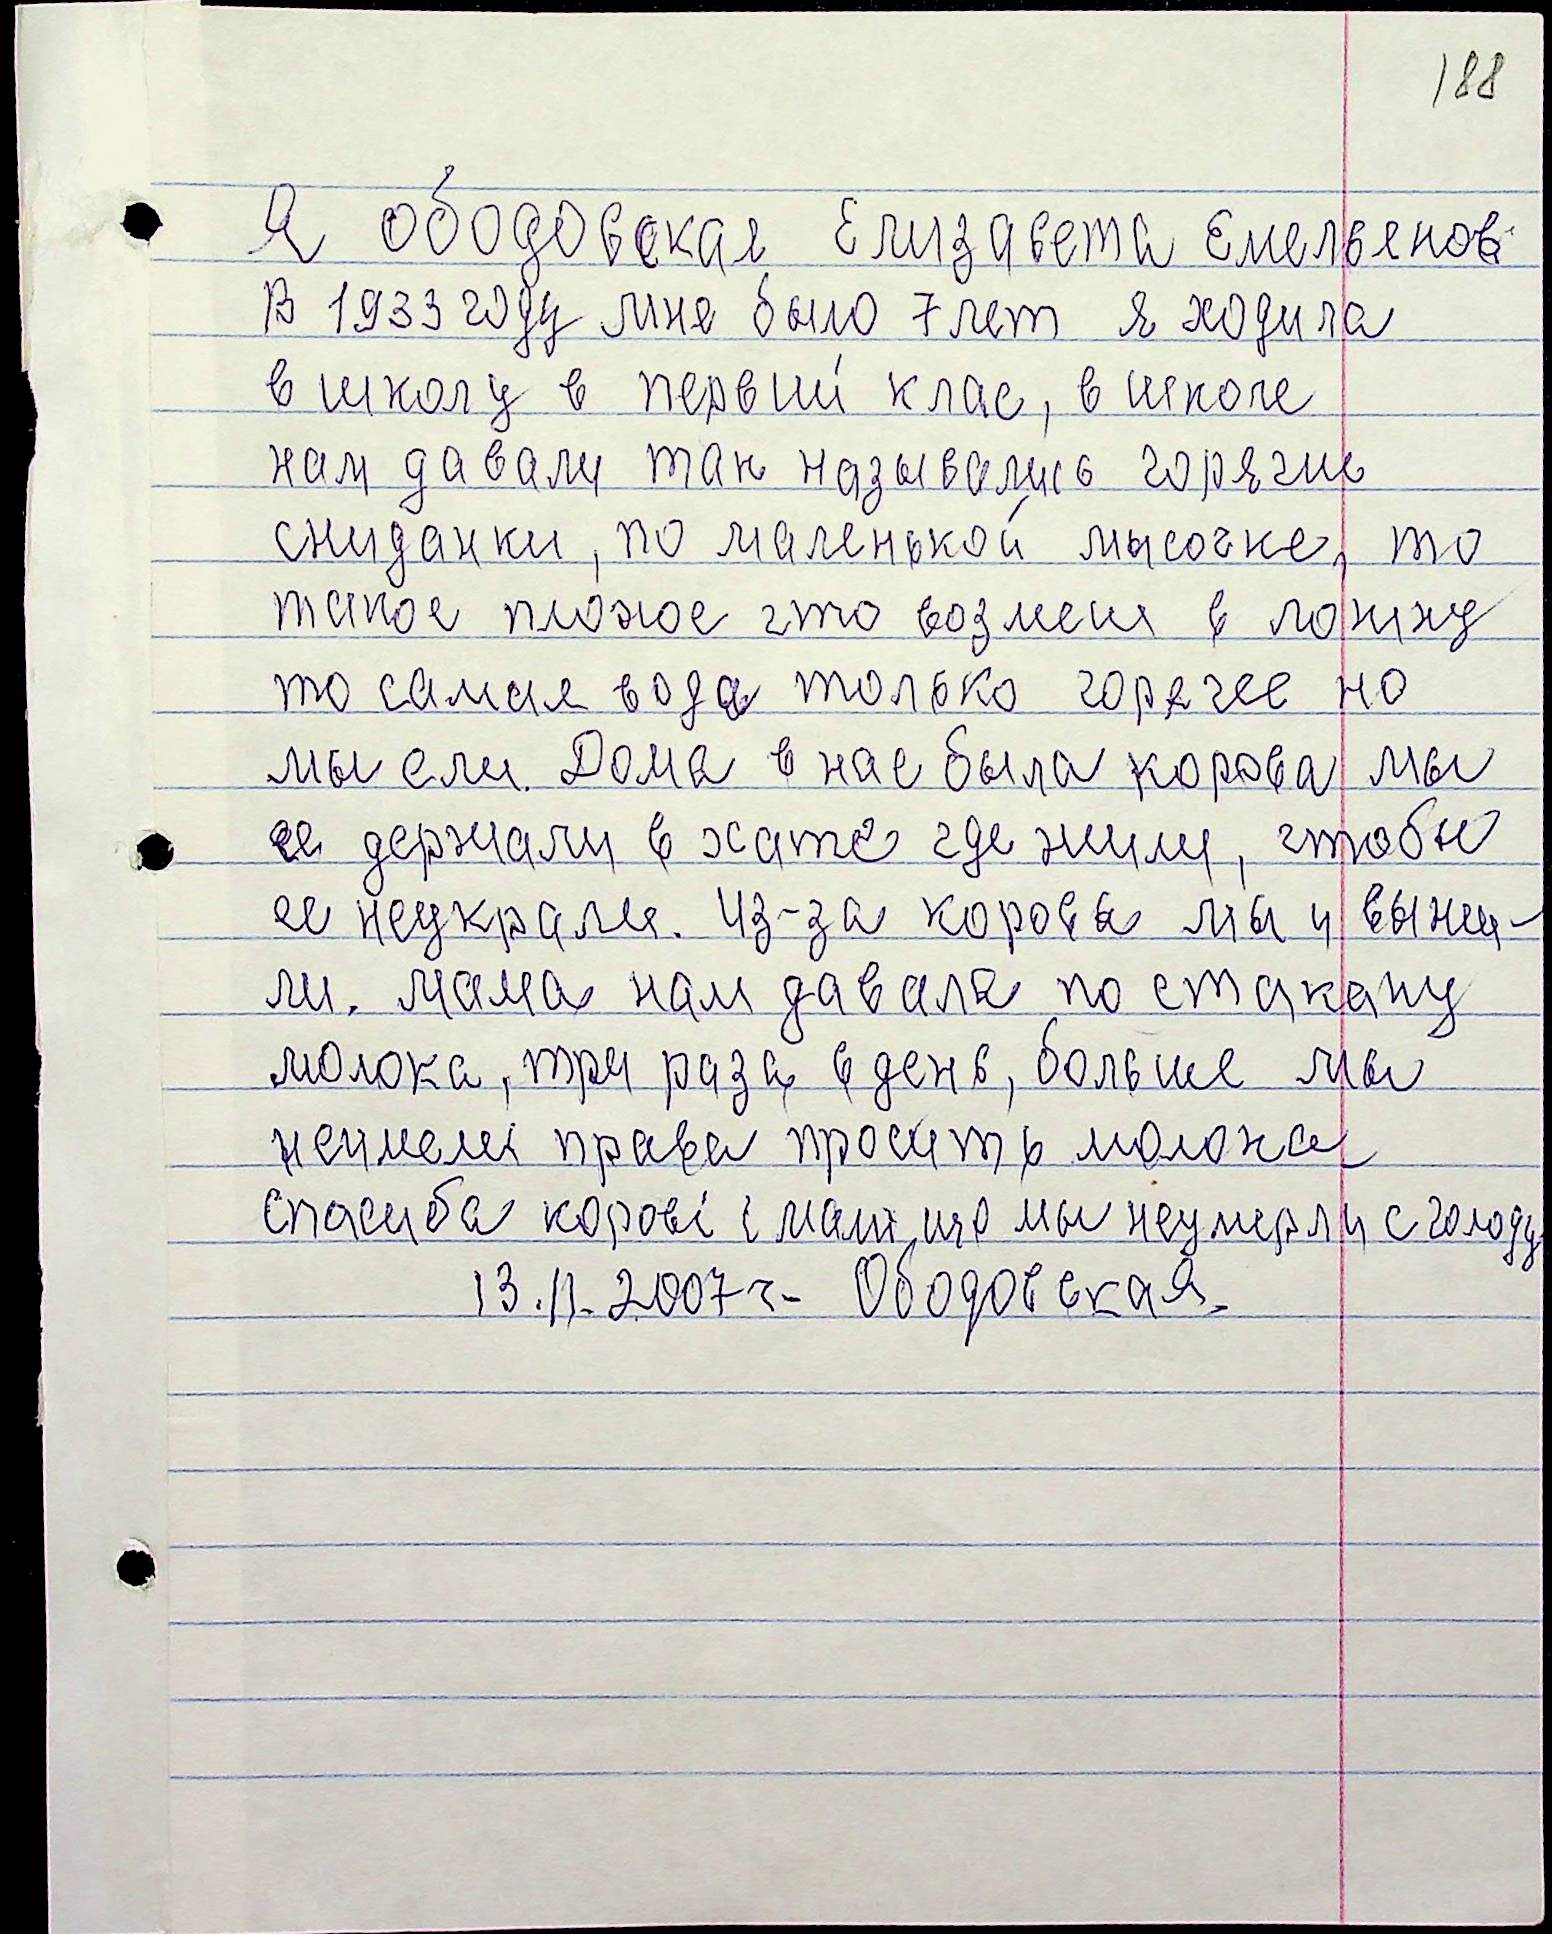 188
Я ободовская Елизавета Емельянов
В 1933 году мне было 7 лет я ходила
в школу в первий клас, в школе
нам давали так назывались горячие
сниданки, по маленькой мысочке, то
такое плохое что возмеш в ложку
то самая вода только горячее но
мы ели. Дома в нас была корова мы
ее держали в хате где жили, чтобы
ее неукрали. Из-за корове мы и выжи-
ли. Мама нам давала по стакану
молока, три раза в день, больше мы
неимели права просить молока
спасиба корові і мамі що мы неумерли с голоду
13.11.2007 г. Ободовская.